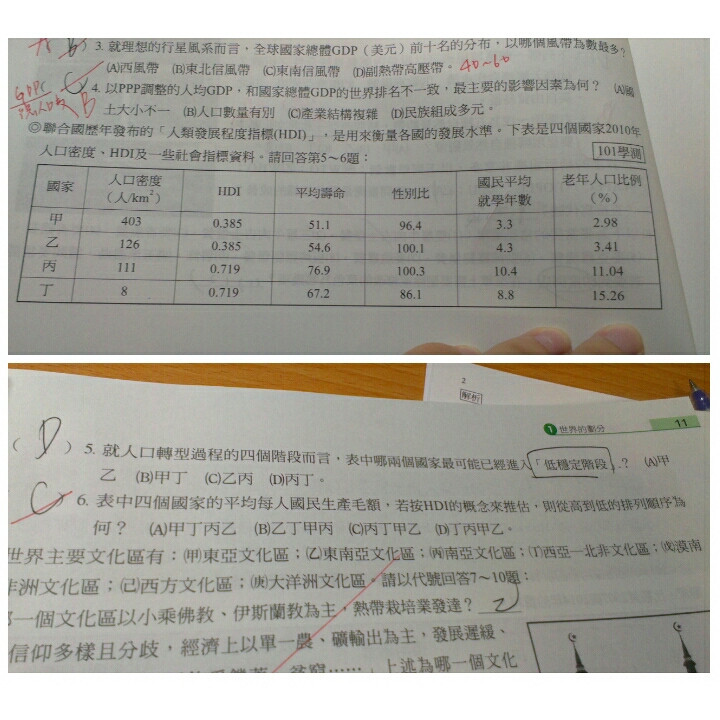 B ) 3. 就理想的行星風系而言，全球國家總體GDP（美元）前十名的分布，以哪個風帶為數最多？
(A)西風帶 (B)東北信風帶 (C)東南信風帶 (D)副熱帶高壓帶。 40~60
C ) 4. 以PPP調整的人均GDP，和國家總體GDP的世界排名不一致，最主要的影響因素為何？ (A)國
B 土大小不一 (B)人口數量有別 (C)產業結構複雜 (D)民族組成多元。
◎聯合國歷年發布的「人類發展程度指標(HDI)」，是用來衡量各國的發展水準。下表是四個國家2010年
人口密度、HDI及一些社會指標資料。請回答第5～6題： 101學測
國家 人口密度（人/km²） HDI 平均壽命 性別比 國民平均就學年數 老年人口比例（%）
甲 403 0.385 51.1 96.4 3.3 2.98
乙 126 0.385 54.6 100.1 4.3 3.41
丙 111 0.719 76.9 100.3 10.4 11.04
丁 8 0.719 67.2 86.1 8.8 15.26
2
解析
1 世界的劃分 11
( D ) 5. 就人口轉型過程的四個階段而言，表中哪兩個國家最可能已經進入「低穩定階段」？ (A)甲
乙 (B)甲丁 (C)乙丙 (D)丙丁。
C ) 6. 表中四個國家的平均每人國民生產毛額，若按HDI的概念來推估，則從高到低的排列順序為
何？ (A)甲丁丙乙 (B)乙丁甲丙 (C)丙丁甲乙 (D)丁丙甲乙。
世界主要文化區有：(甲)東亞文化區；(乙)東南亞文化區；(丙)南亞文化區；(丁)西亞—北非文化區；(戊)漠南
非洲文化區；(己)西方文化區；(庚)大洋洲文化區。請以代號回答7～10題：
一個文化區以小乘佛教、伊斯蘭教為主，熱帶栽培業發達？ 乙
信仰多樣且分歧，經濟上以單一農、礦輸出為主，發展遲緩、
貧窮……」上述為哪一個文化